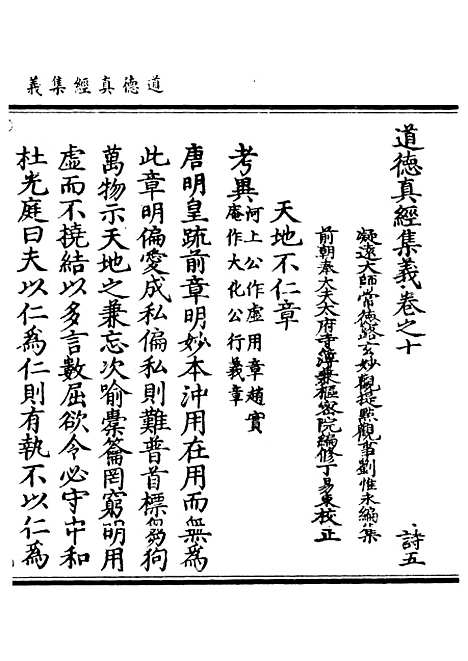 道德真經集義
道德真經集義卷之十
詩五
凝遠大師常德路玄妙觀提點觀事劉惟永編集
前朝奉大夫太府寺簿兼樞密院編修丁易東校正
天地不仁章
考異河上公作虛用章趙實
庵作大化公行義章
唐明皇疏前章明妙本沖用在用而無為
此章明偏愛成私偏私則難普首標芻狗
萬物示天地之兼忘次喻橐籥罔窮明用
虛而不撓結以多言數屈欲令必守中和
杜光庭曰夫以仁為仁則有執不以仁為